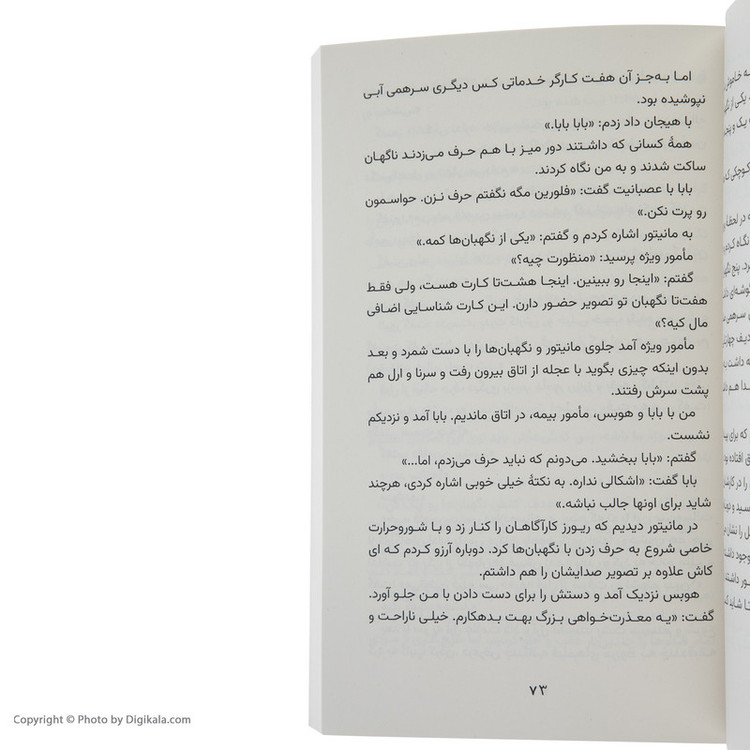 اما به‌جز آن هفت کارگر خدماتی کس دیگری سرهمی آبی
نپوشیده بود.
با هیجان داد زدم: «بابا بابا.»
همهٔ کسانی که داشتند دور میز با هم حرف می‌زدند ناگهان
ساکت شدند و به من نگاه کردند.
بابا با عصبانیت گفت: «فلورین مگه نگفتم حرف نزن. حواسمون
رو پرت نکن.»
به مانیتور اشاره کردم و گفتم: «یکی از نگهبان‌ها کمه.»
مأمور ویژه پرسید: «منظورت چیه؟»
گفتم: «اینجا رو ببینین. اینجا هشت‌تا کارت هست، ولی فقط
هفت‌تا نگهبان تو تصویر حضور دارن. این کارت شناسایی اضافی
مال کیه؟»
مأمور ویژه آمد جلوی مانیتور و نگهبان‌ها را با دست شمرد و بعد
بدون اینکه چیزی بگوید با عجله از اتاق بیرون رفت و سرنا و ارل هم
پشت سرش رفتند.
من با بابا و هوبس، مأمور بیمه، در اتاق ماندیم. بابا آمد و نزدیکم
نشست.
گفتم: «بابا ببخشید. می‌دونم که نباید حرف می‌زدم، اما...»
بابا گفت: «اشکالی نداره. به نکتهٔ خیلی خوبی اشاره کردی، هرچند
شاید برای اونها جالب نباشه.»
در مانیتور دیدیم که ریورز کارآگاهان را کنار زد و با شوروحرارت
خاصی شروع به حرف زدن با نگهبان‌ها کرد. دوباره آرزو کردم که ای
کاش علاوه بر تصویر صدایشان را هم داشتم.
هوبس نزدیک آمد و دستش را برای دست دادن با من جلو آورد.
گفت: «یه معذرت‌خواهی بزرگ بهت بدهکارم. خیلی ناراحت و
۷۳
Copyright © Photo by Digikala.com